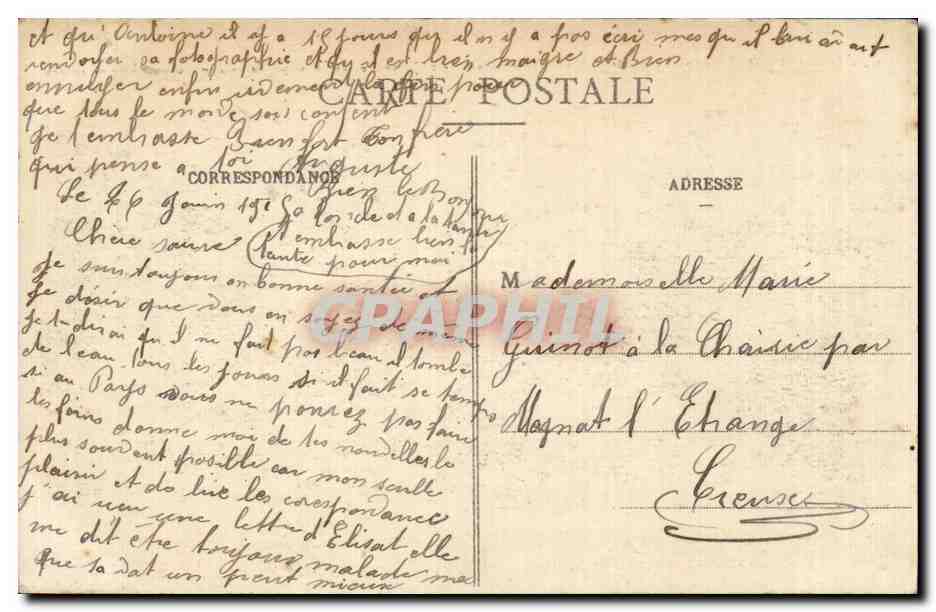 et qu'Antoine il y a 15 jours qu'il n'y a pas écri mes qu'il lui avait
renvoyer sa fotographie et qu'il est bien maigre et Bien
ennuyer enfin vivement la
CARTE POSTALE
que tous le monde sois content
Je t'embrasse Bien fort Ton frère
qui pense a toi Auguste
CORRESPONDANCE
Bien le Bonjour
Le 26 Juin 191
a la tante
Chère soeure
t'embrasse bien la
tante pour moi
Je suis toujours en bonne santée et
Je désir que vous en soyez de même
Je te dirai qu'il ne fait pas beau il tombe
de l'eau tous les jours si il fait se temps
si au Pays vous ne pourrez pas faire
les foins donne moi de tes nouvelles le
plus souvent posible car mon seulle
plaisir et do lire les corespondance
j'ai reçu une lettre d'Elisat elle
me dit être toujours malade ma
que sa vat un peut mieux
ADRESSE
Mademoiselle Marie
Guinot à la Chaisie par
Magnat l'Etrange
Creuse
GRAPHIL